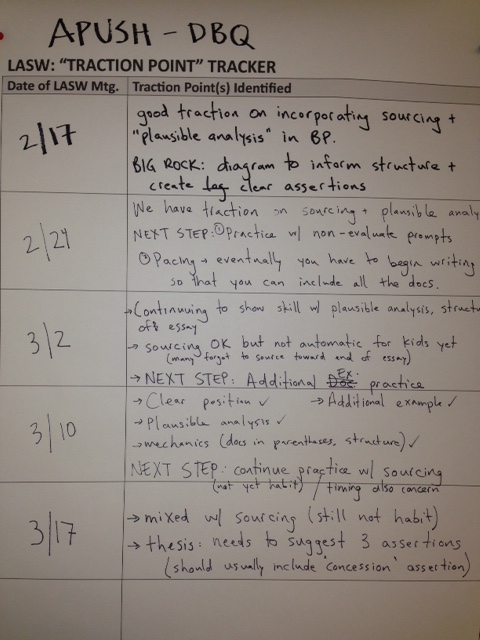 APUSH - DBQ
LASW: "TRACTION POINT" TRACKER
Date of LASW Mtg. Traction Point(s) Identified
2/17
good traction on incorporating sourcing +
"plausible analysis" in BP.
BIG ROCK: diagram to inform structure +
create clear assertions
2/24
We have traction on sourcing + plausible analy
NEXT STEP: ① Practice w/ non-evaluate prompts
② Pacing → eventually you have to begin writing
so that you can include all the docs.
3/2
→ Continuing to show skill w/ plausible analysis, structu
of essay
→ sourcing OK but not automatic for kids yet
(many forgot to source toward end of essay)
→ NEXT STEP: Additional Ex. practice
3/10
→ Clear position ✓ → Additional example ✓
→ Plausible analysis ✓
→ mechanics (docs in parentheses, structure) ✓
NEXT STEP: continue practice w/ sourcing
(not yet habit) / timing also concern
3/17
→ mixed w/ sourcing (still not habit)
→ thesis: needs to suggest 3 assertions
(should usually include "concession" assertion)